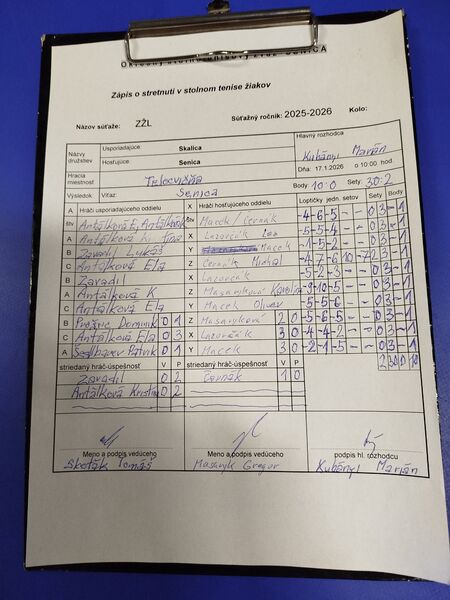 Zápis o stretnutí v stolnom tenise žiakov
Názov súťaže: ZŽL Súťažný ročník: 2025-2026 Kolo:
Názvy družstiev Usporiadajúce: Skalica Hlavný rozhodca
Hosťujúce: Senica Kubányi Marián
Hracia miestnosť Telocvičňa Dňa: 17.1.2026 o 10:00 hod.
Výsledok Víťaz: Senica Body: 10:0 Sety: 30:2
A Hráči usporiadajúceho oddielu X Hráči hosťujúceho oddielu Loptičky jedn. setov Sety Body
štv Antálková E, Antálková K štv Macek / Černák -4 -6 -5 - - 0 3 - 1
A Antálková X Lazarčík -2 - - 0 3 - 1
B Zavadil Lukáš Y Macek -1 -5 -2 - - 0 3 - 1
C Antálková Ela Z Černák Michal -4 -7 6 10 -7 2 3 - 1
B Zavadil X Lazarčík -5 -2 -3 - - 0 3 - 1
A Antálková K Z Masaryková Karolína - - 0 3 - 1
C Antálková Ela Y Macek Oliver -5 -5 -6 - - 0 3 - 1
B Dominik 0 1 Z Masaryková 2 0 -5 -5 -6 - - 0 3 - 1
C Antálková Ela 0 3 X Lazarčík 3 0 -4 -4 -2 - - 0 3 - 1
A Patrik 0 1 Y Macek 3 0 -2 -1 -5 - - 0 3 - 1
striedaný hráč-úspešnosť V P striedaný hráč-úspešnosť V P 2 30 0 10
Zavadil 0 2 Černák 1 0
Antálková Kristína 0 2
Meno a podpis vedúceho Meno a podpis vedúceho podpis hl. rozhodcu
Tomáš Masaryk Gregor Kubányi Marián